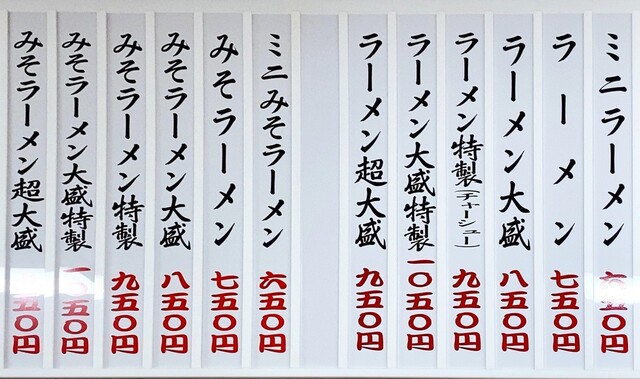 ミニラーメン 六五〇円
ラーメン 七五〇円
ラーメン大盛 八五〇円
ラーメン特製(チャーシュー) 九五〇円
ラーメン大盛特製 一〇五〇円
ラーメン超大盛 九五〇円
ミニみそラーメン 六五〇円
みそラーメン 七五〇円
みそラーメン大盛 八五〇円
みそラーメン特製 九五〇円
みそラーメン大盛特製 一〇五〇円
みそラーメン超大盛 五〇円